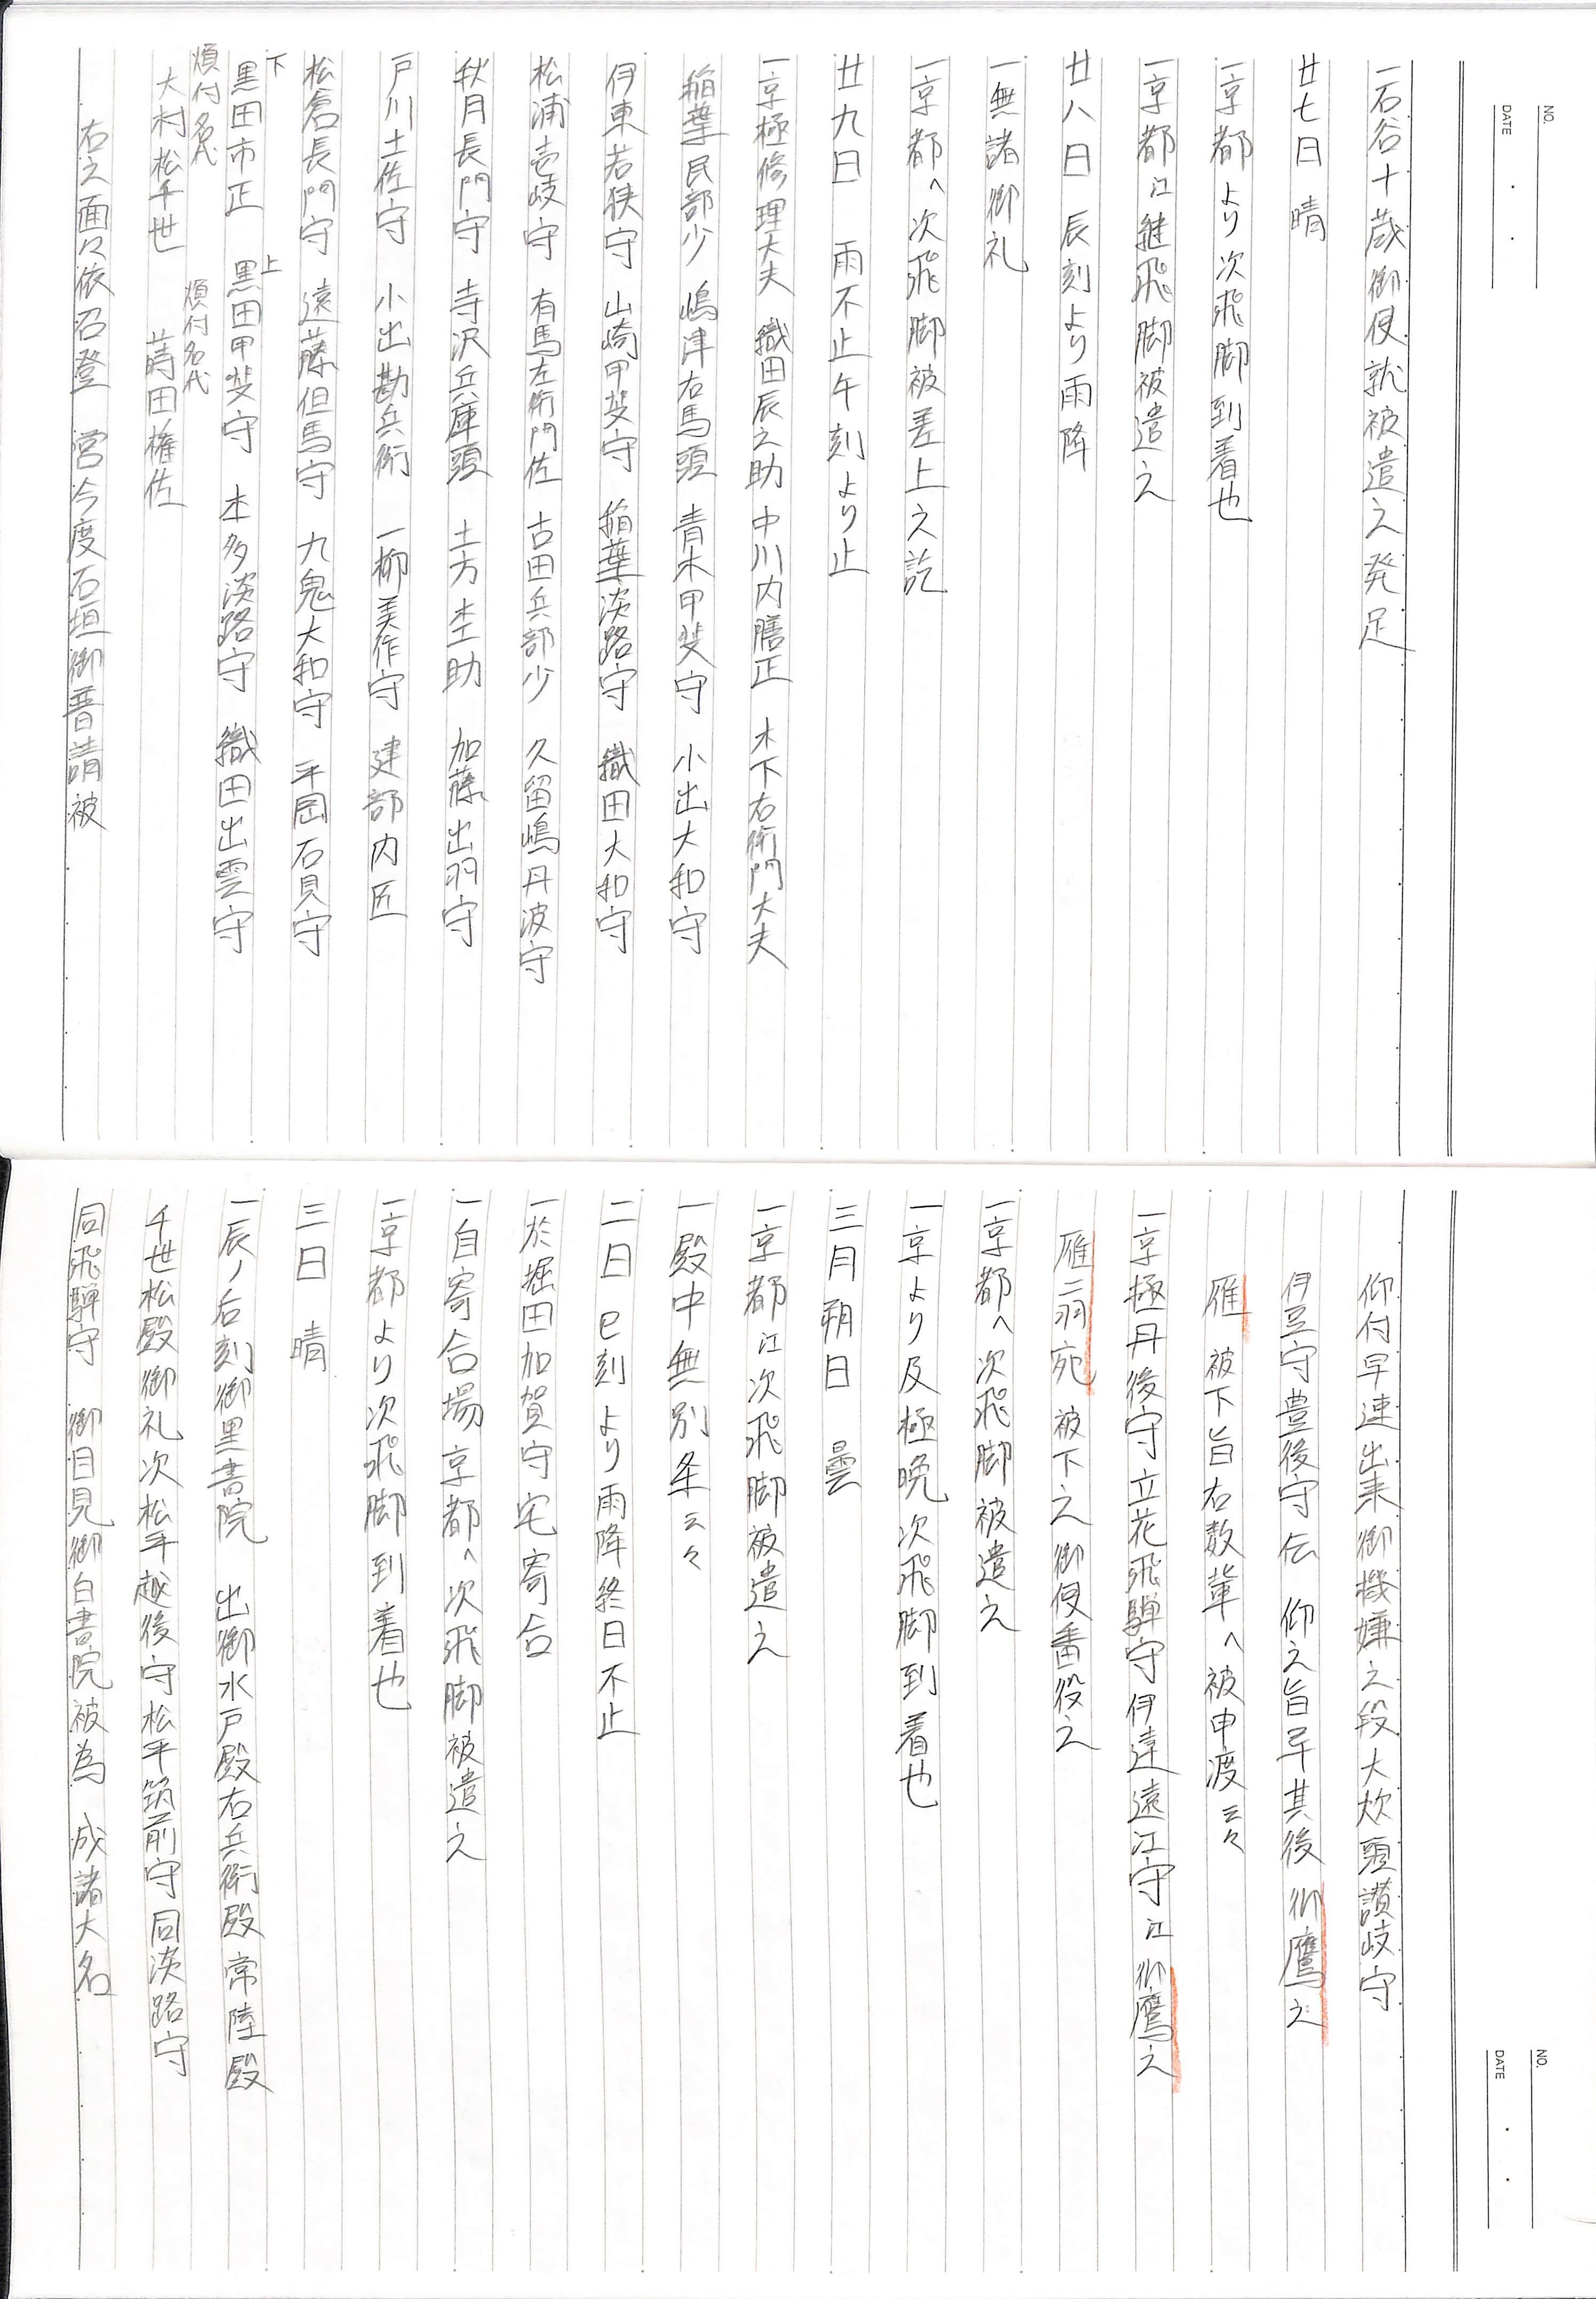 NO.
DATE
一石谷十蔵御使就被遣之発足
廿七日 晴
一京都より次飛脚到着也
一京都江継飛脚被遣之
廿八日 辰刻より雨降
一無諸御礼
一京都へ次飛脚被差上之訖
廿九日 雨不止午刻より止
一京極修理大夫 織田辰之助 中川内膳正 木下右衛門大夫
稲葉民部少 嶋津右馬頭 青木甲斐守 小出大和守
伊東若狭守 山崎甲斐守 稲葉淡路守 織田大和守
松浦壱岐守 有馬左衛門佐 古田兵部少 久留嶋丹波守
秋月長門守 寺沢兵庫頭 土方杢助 加藤出羽守
戸川土佐守 小出勘兵衛 一柳美作守 建部内匠
松倉長門守 遠藤但馬守 九鬼大和守 平岡石見守
下 上
黒田市正 黒田甲斐守 本多淡路守 織田出雲守
煩付名代 煩付名代
大村松千世 蒔田権佐
右之面々依召登 営今度石垣御普請被
NO.
DATE
仰付早速出来御機嫌之段大炊頭讃岐守
伊豆守豊後守伝 仰之旨畢其後 御鷹之
雁 被下旨右数輩へ被申渡云々
一京極丹後守立花飛騨守伊達遠江守江御鷹之
雁二羽宛被下之御使番役之
一京都へ次飛脚被遣之
一京より及極晩次飛脚到着也
三月朔日 曇
一京都江次飛脚被遣之
一殿中無別条云々
二日 巳刻より雨降終日不止
一於堀田加賀守宅寄合
一自寄合場京都へ次飛脚被遣之
一京都より次飛脚到着也
三日 晴
一辰ノ后刻御黒書院 出御水戸殿右兵衛殿常陸殿
千世松殿御礼次松平越後守松平筑前守同淡路守
同飛騨守 御目見御白書院被為 成諸大名